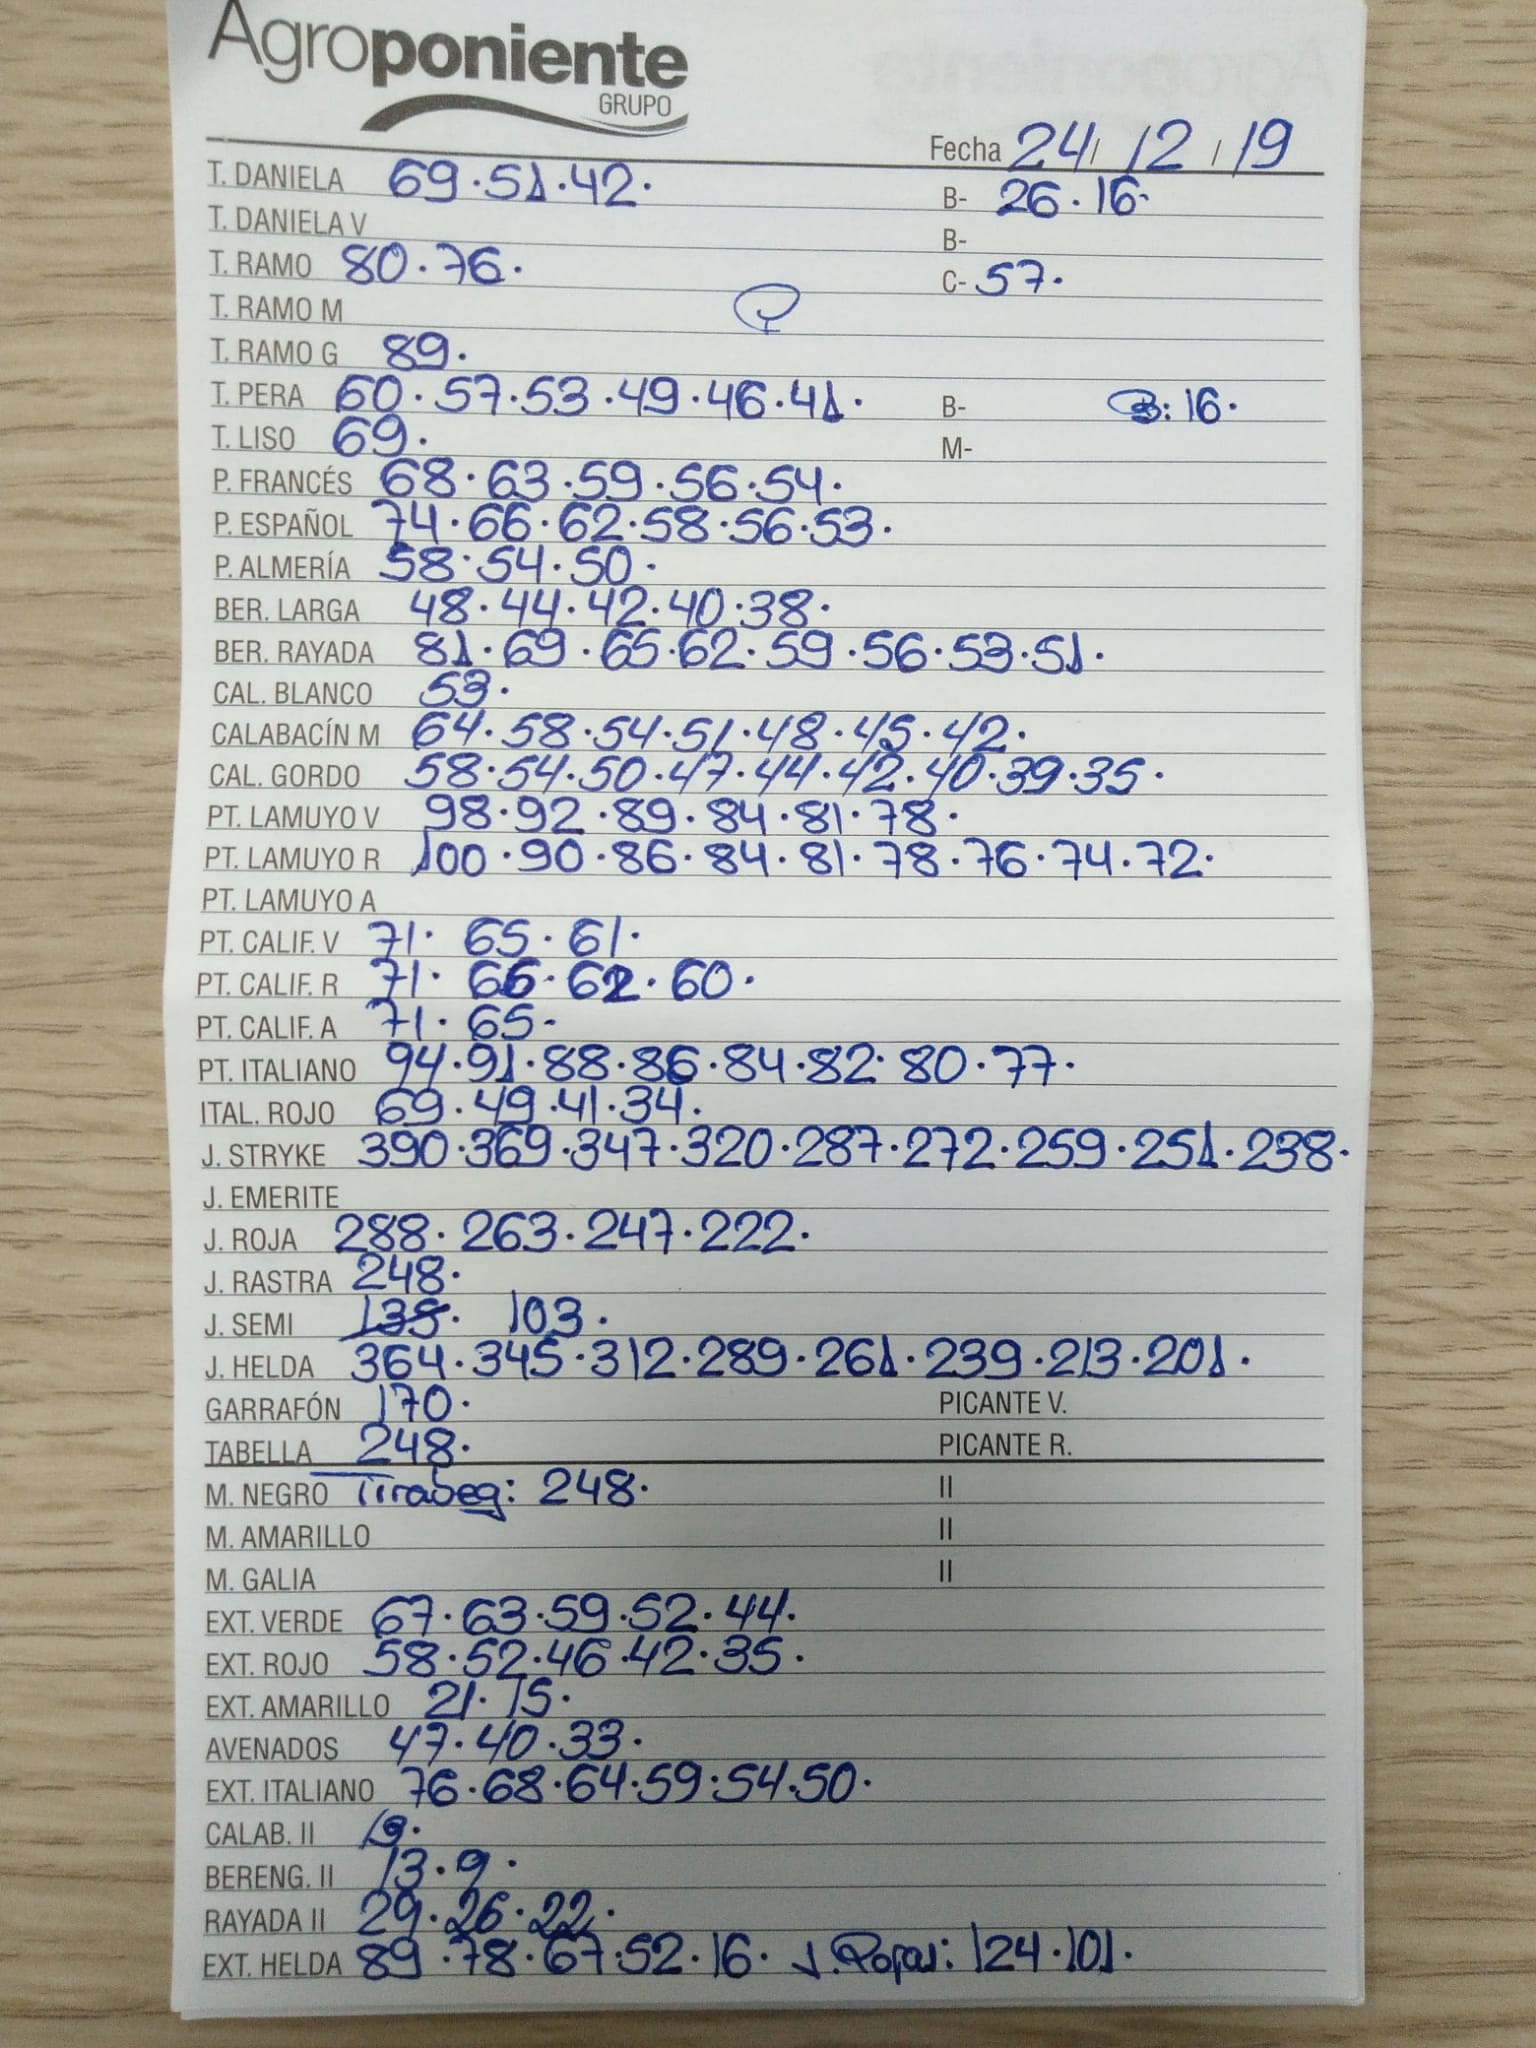 Agroponiente
GRUPO
Fecha 24/12/19
T. DANIELA 69·51·42· B- 26·16·
T. DANIELA V B-
T. RAMO 80·76· C- 57·
T. RAMO M
T. RAMO G 89·
T. PERA 60·57·53·49·46·41· B- B: 16·
T. LISO 69· M-
P. FRANCÉS 68·63·59·56·54·
P. ESPAÑOL 74·66·62·58·56·53·
P. ALMERÍA 58·54·50·
BER. LARGA 48·44·42·40·38·
BER. RAYADA 81·69·65·62·59·56·53·51·
CAL. BLANCO 53·
CALABACÍN M 64·58·54·51·48·45·42·
CAL. GORDO 58·54·50·47·44·42·40·39·35·
PT. LAMUYO V 98·92·89·84·81·78·
PT. LAMUYO R 100·90·86·84·81·78·76·74·72·
PT. LAMUYO A
PT. CALIF. V 71·65·61·
PT. CALIF. R 71·66·62·60·
PT. CALIF. A 71·65-
PT. ITALIANO 94·91·88·86·84·82·80·77·
ITAL. ROJO 69·49·41·34·
J. STRYKE 390·369·347·320·287·272·259·251·238·
J. EMERITE
J. ROJA 288·263·247·222·
J. RASTRA 248·
J. SEMI 103·
J. HELDA 364·345·312·289·261·239·213·201·
GARRAFÓN 170· PICANTE V.
TABELLA 248· PICANTE R.
M. NEGRO Tirabeq: 248· II
M. AMARILLO II
M. GALIA II
EXT. VERDE 67·63·59·52·44·
EXT. ROJO 58·52·46·42·35·
EXT. AMARILLO 21·15·
AVENADOS 47·40·33·
EXT. ITALIANO 76·68·64·59·54·50·
CALAB. II
BERENG. II 13·9·
RAYADA II 29·26·22·
EXT. HELDA 89·78·67·52·16· J. Rojas: 124·101·